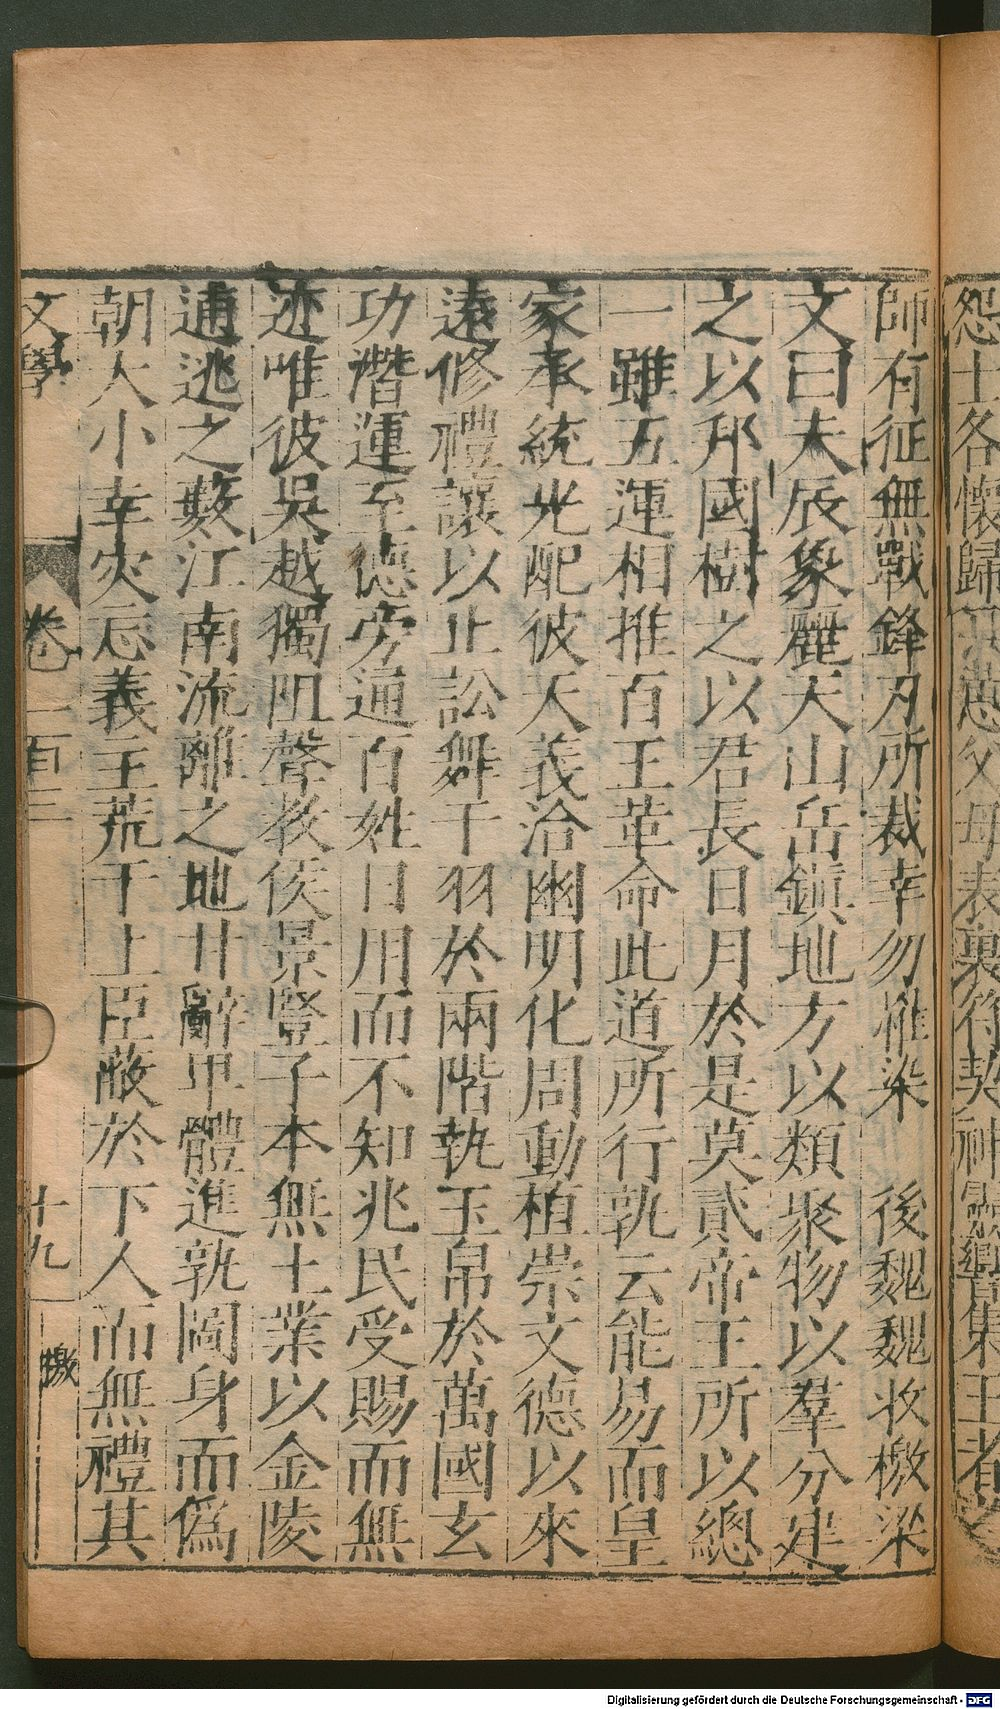 怨士各懷歸思父母表裏符契神集王者之
師有征無戰鋒刃所裁幸勿惟梁 後魏魏收檄梁
文曰夫辰象麗天山岳鎮地方以類聚物以羣分建
之以邦國樹之以君長日月於是莫貳帝王所以總
一雖五運相推百王革命此道所行孰云能易而皇
家承統光配彼天義洽幽明化周動植崇文德以來
遠修禮讓以止訟舞干羽於兩階執玉帛於萬國玄
功潛運至德旁通百姓日用而不知兆民受賜而無
迹唯彼吳越獨阻聲教侯景豎子本無士業以金陵
逋逃之藪江南流離之地甘辭卑體進孰圖身而偽
朝大小幸灾忘義主荒于上臣蔽於下人而無禮其
文學 卷一百三 十九 檄
Digitalisierung gefördert durch die Deutsche Forschungsgemeinschaft - DFG